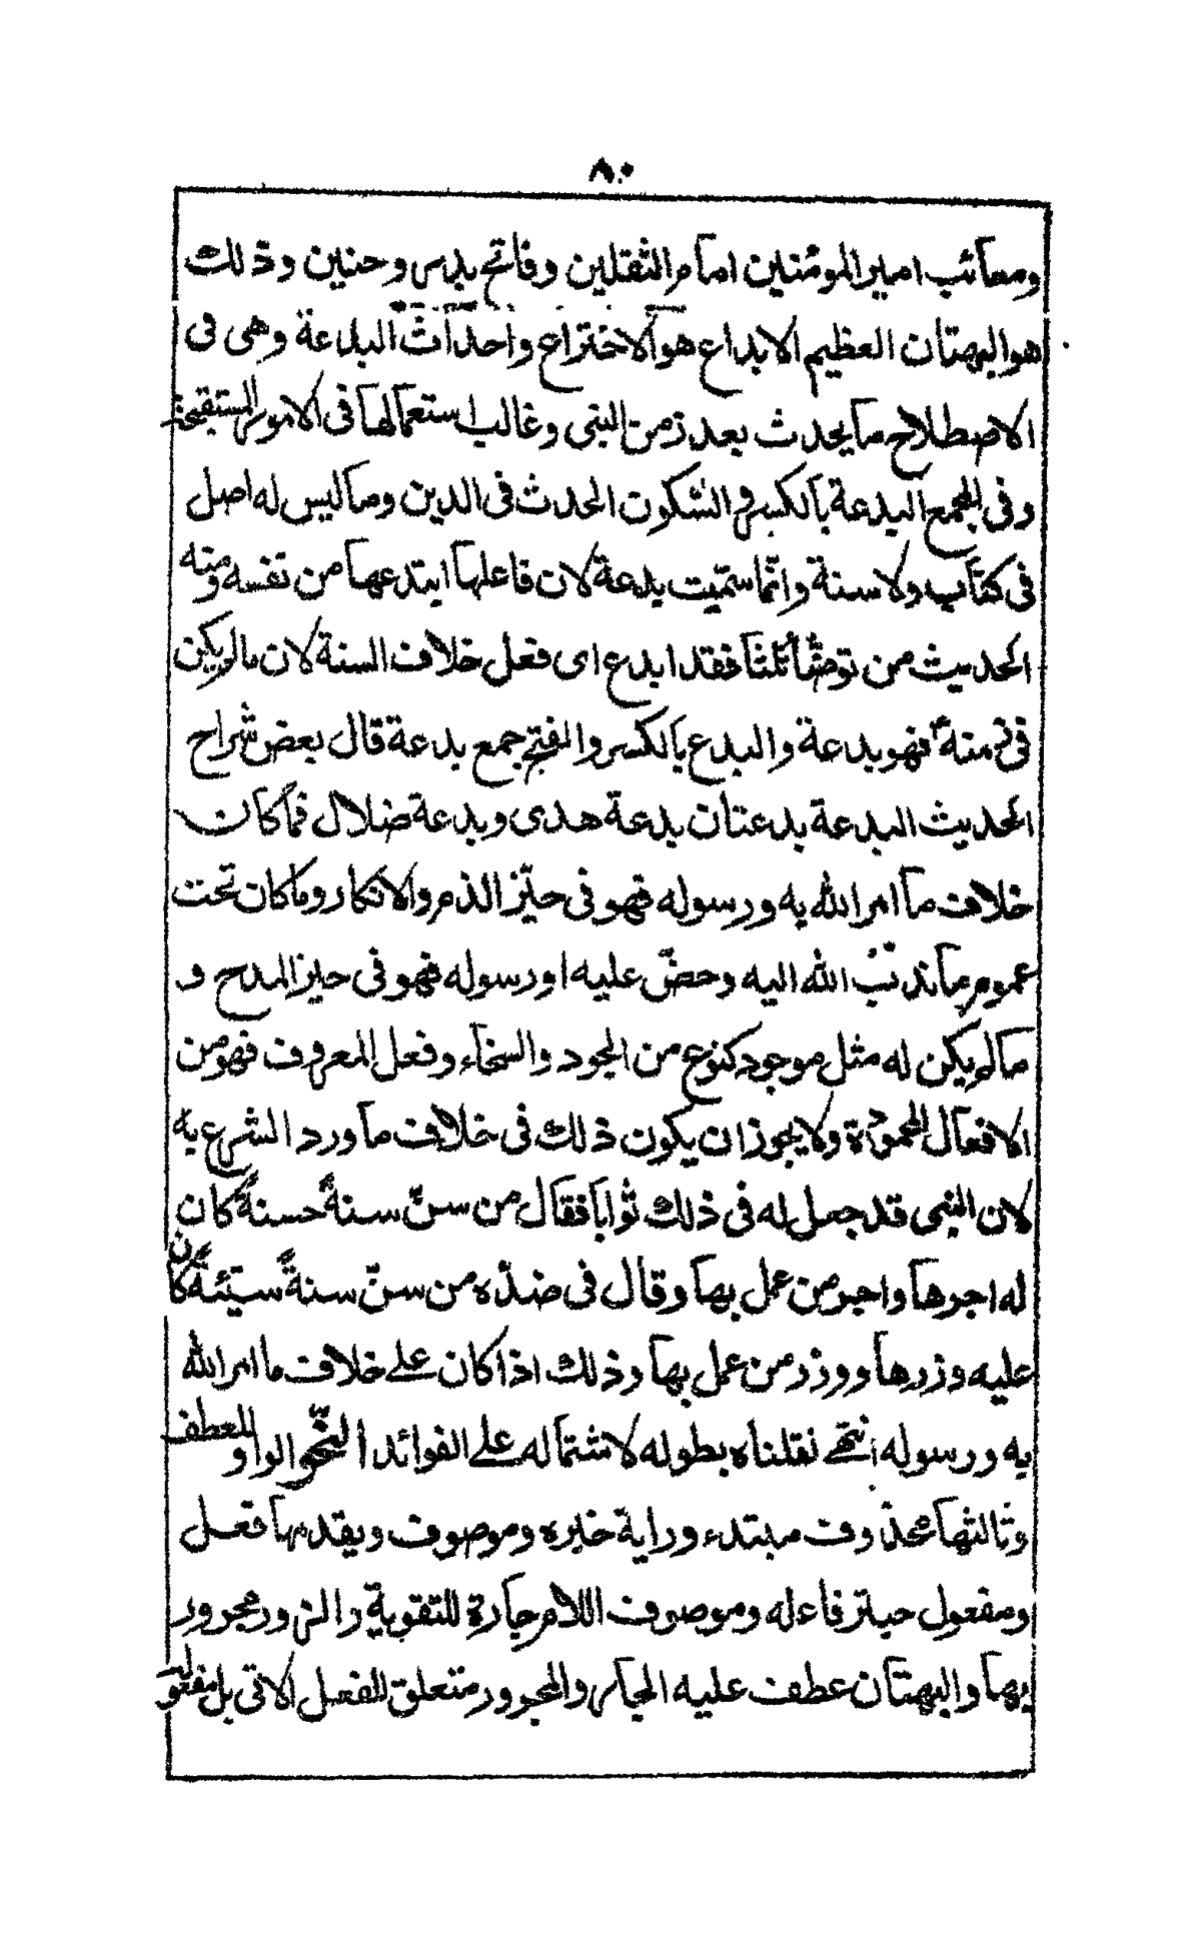 ٨٠
ومصائب امير المؤمنين امام الثقلين وفاتح بدر وحنين وذلك
هو البهتان العظيم الابداع هو الاختراع واحداث البدعة وهى فى
الاصطلاح ما يحدث بعد زمن النبى وغالب استعمالها فى الامور المستقبحة
وفى المجمع البدعة بالكسر والسكون الحدث فى الدين وما ليس له اصل
فى كتاب ولا سنة وانّما سمّيت بدعة لان فاعلها ابتدعها من نفسه ومنه
الحديث من توضّأ ثلثا فقد ابدع اى فعل خلاف السنة لان ما لم يكن
فى زمنه فهو بدعة والبدع بالكسر والفتح جمع بدعة قال بعض شراح
الحديث البدعة بدعتان بدعة هدى وبدعة ضلال فما كان
خلاف ما امر الله به ورسوله فهو فى حيّز الذم والانكار وما كان تحت
عموم ما ندب الله اليه وحضّ عليه او رسوله فهو فى حيز المدح و
ما لم يكن له مثل موجود كنوع من الجود والسخاء وفعل المعروف فهو من
الافعال المحمودة ولا يجوز ان يكون ذلك فى خلاف ما ورد الشرع به
لان النبى قد جعل له فى ذلك ثوابا فقال من سنّ سنةً حسنةً كان
له اجرها واجر من عمل بها وقال فى ضدّه من سنّ سنةً سيّئةً كان
عليه وزرها ووزر من عمل بها وذلك اذا كان على خلاف ما امر الله
به ورسوله انتهى نقلناه بطوله لاشتماله على الفوائد النّحو الواو للعطف
وثالثها محذوف مبتدء وراية خبره وموصوف ويقدمها فعل
ومفعول حبتر فاعله وموصوف اللام جارة للتقوية والزور مجرور
بها والبهتان عطف عليه الجار والمجرور متعلق للفعل الاتى بل مفعوله